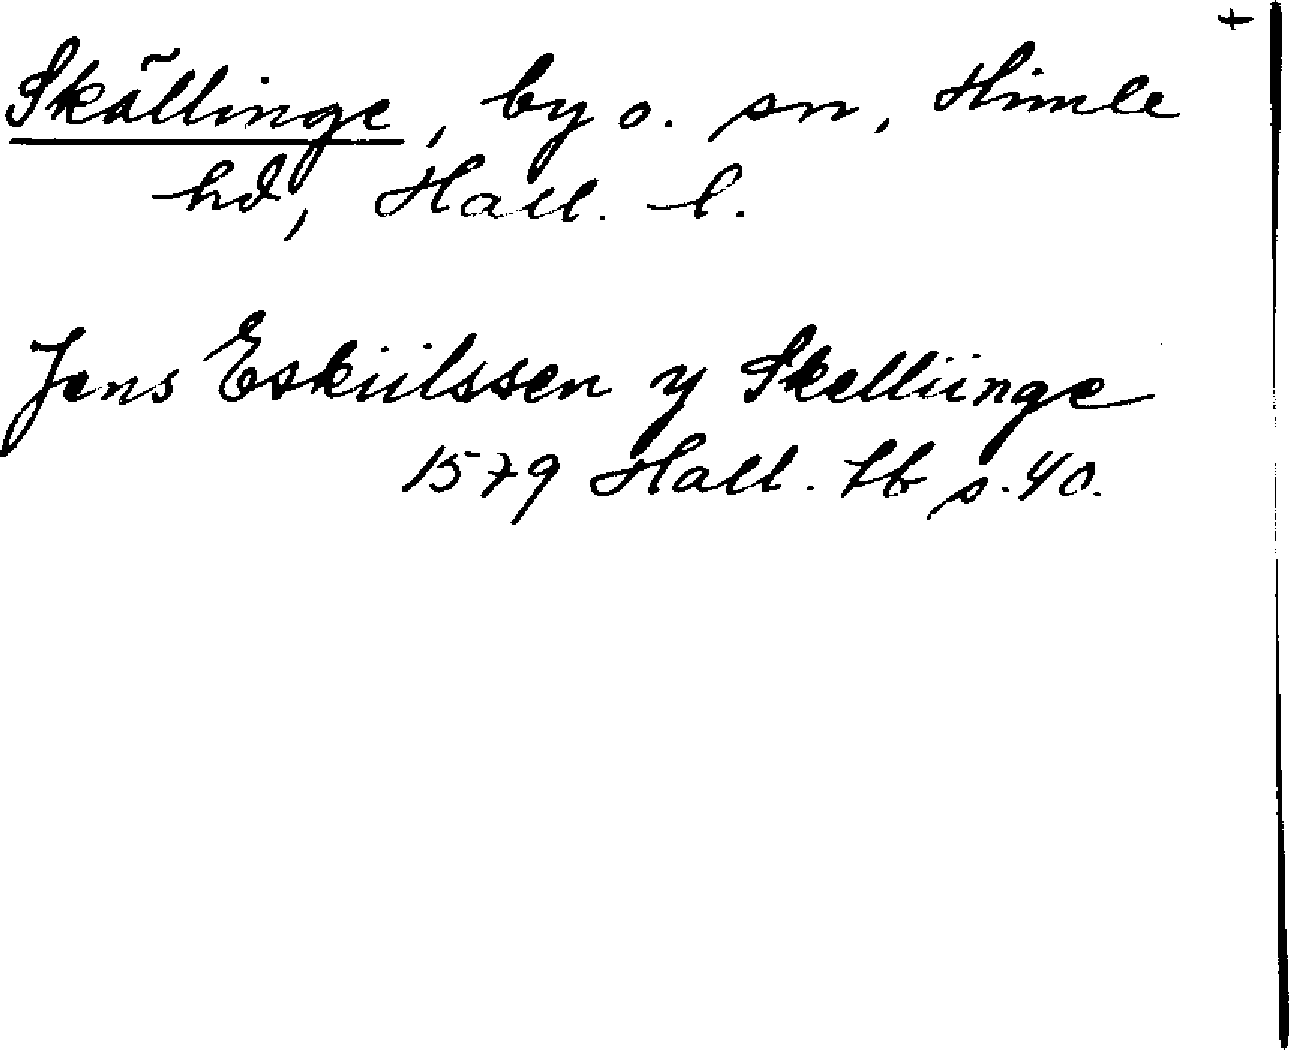 Skällinge, by o. sn, Himle
hd, Hall. l.
Jens Eskiilssen y Skelliinge
1579 Hall. lb s. 40.